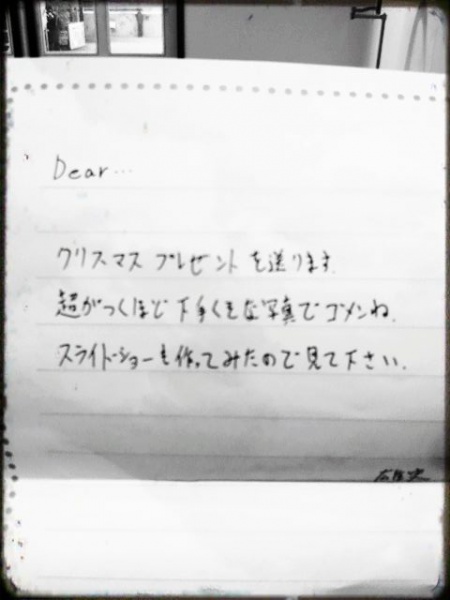 Dear…
クリスマス プレゼント を送ります.
超がつくほど下手くそな写真でゴメンね.
スライドショーを作ってみたので見て下さい.